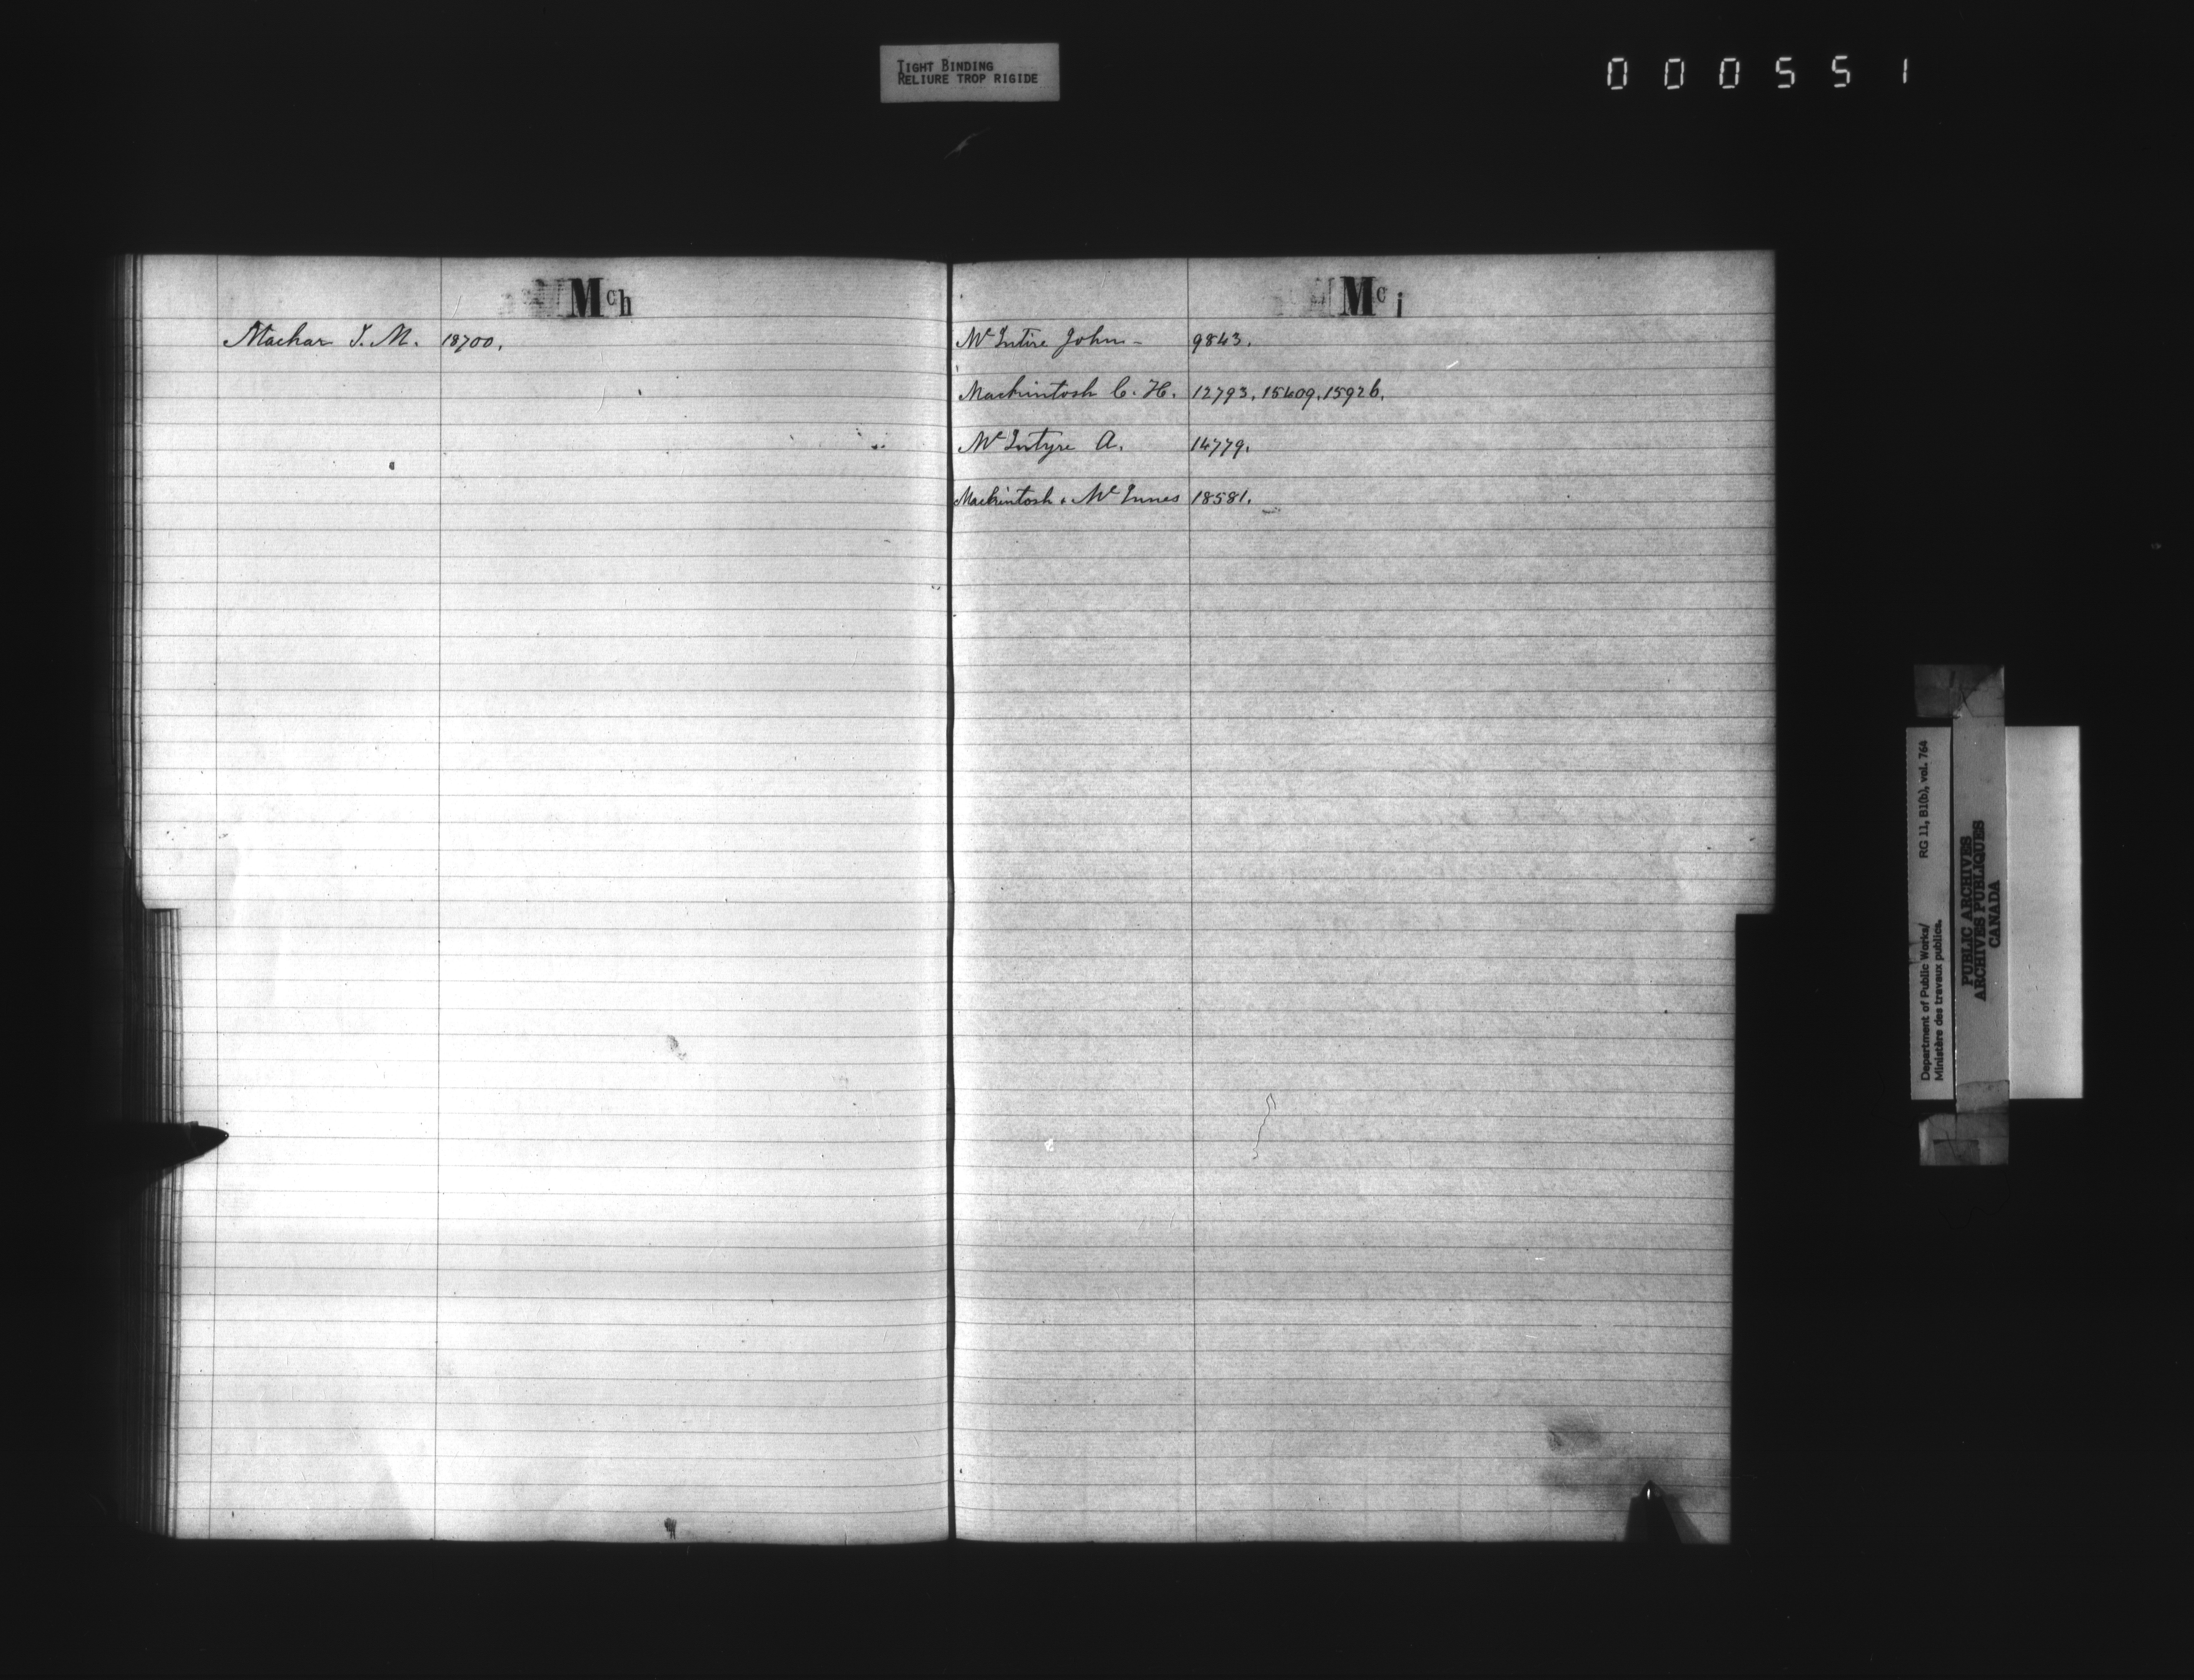 TIGHT BINDING
RELIURE TROP RIGIDE
000551
Mch
Machar J. M. 18700.
Mci
McIntire John - 9843.
Mackintosh C. H. 12793, 15409, 15926.
McIntyre A. 14779.
Mackintosh & McInnes 18581.
Department of Public Works/ RG 11, B1(b), vol. 764
Ministère des travaux publics.
PUBLIC ARCHIVES
ARCHIVES PUBLIQUES
CANADA